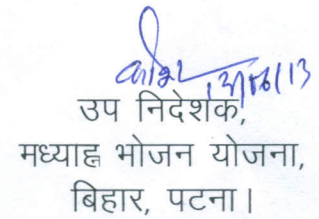 13/06/13
उप निदेशक,
मध्याह्न भोजन योजना,
बिहार, पटना।